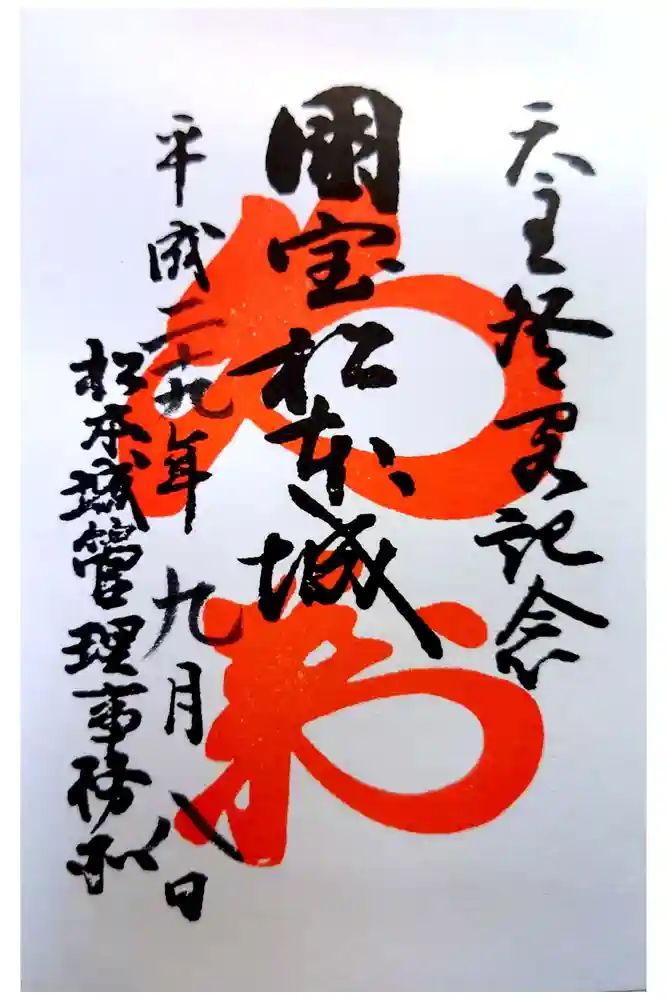 天主登閣記念
國宝松本城
平成二十九年九月八日
松本城管理事務所